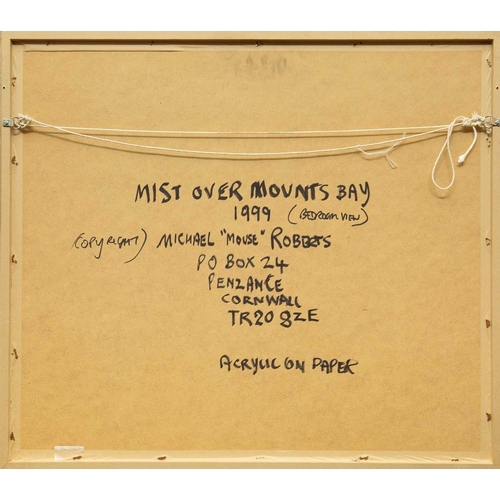 MIST OVER MOUNTS BAY
1999 (BEDROOM VIEW)
COPYRIGHT) MICHAEL "MOUSE" ROBERTS
PO BOX 24
PENZANCE
CORNWALL
TR20 8ZE
ACRYLIC ON PAPER